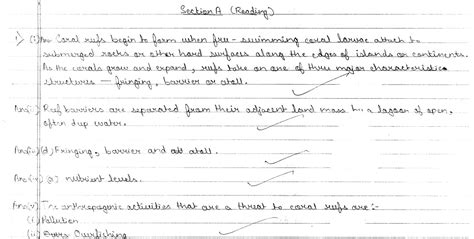 Section A (Reading)
1) (i) Ans Coral reefs begin to form when free-swimming coral larvae attach to
submerged rocks or other hard surfaces along the edges of islands or continents.
As the corals grow and expand, reefs take on one of three major characteristic
structures — fringing, barrier or atoll.
Reef barriers are separated from their adjacent land mass by a lagoon of open,
often deep water.
(d) Fringing, barrier and atoll.
(a) nutrient levels.
The anthropogenic activities that are a threat to coral reefs are :-
(i) Pollution
(ii) Overfishing